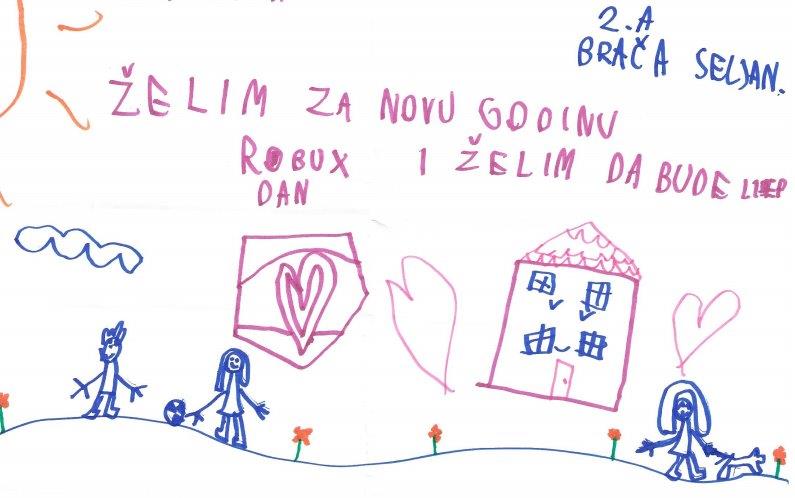 2.A
BRAČA SELJAN.
ŽELIM ZA NOVU GODINU
ROBUX I ŽELIM DA BUDE LIJEP
DAN